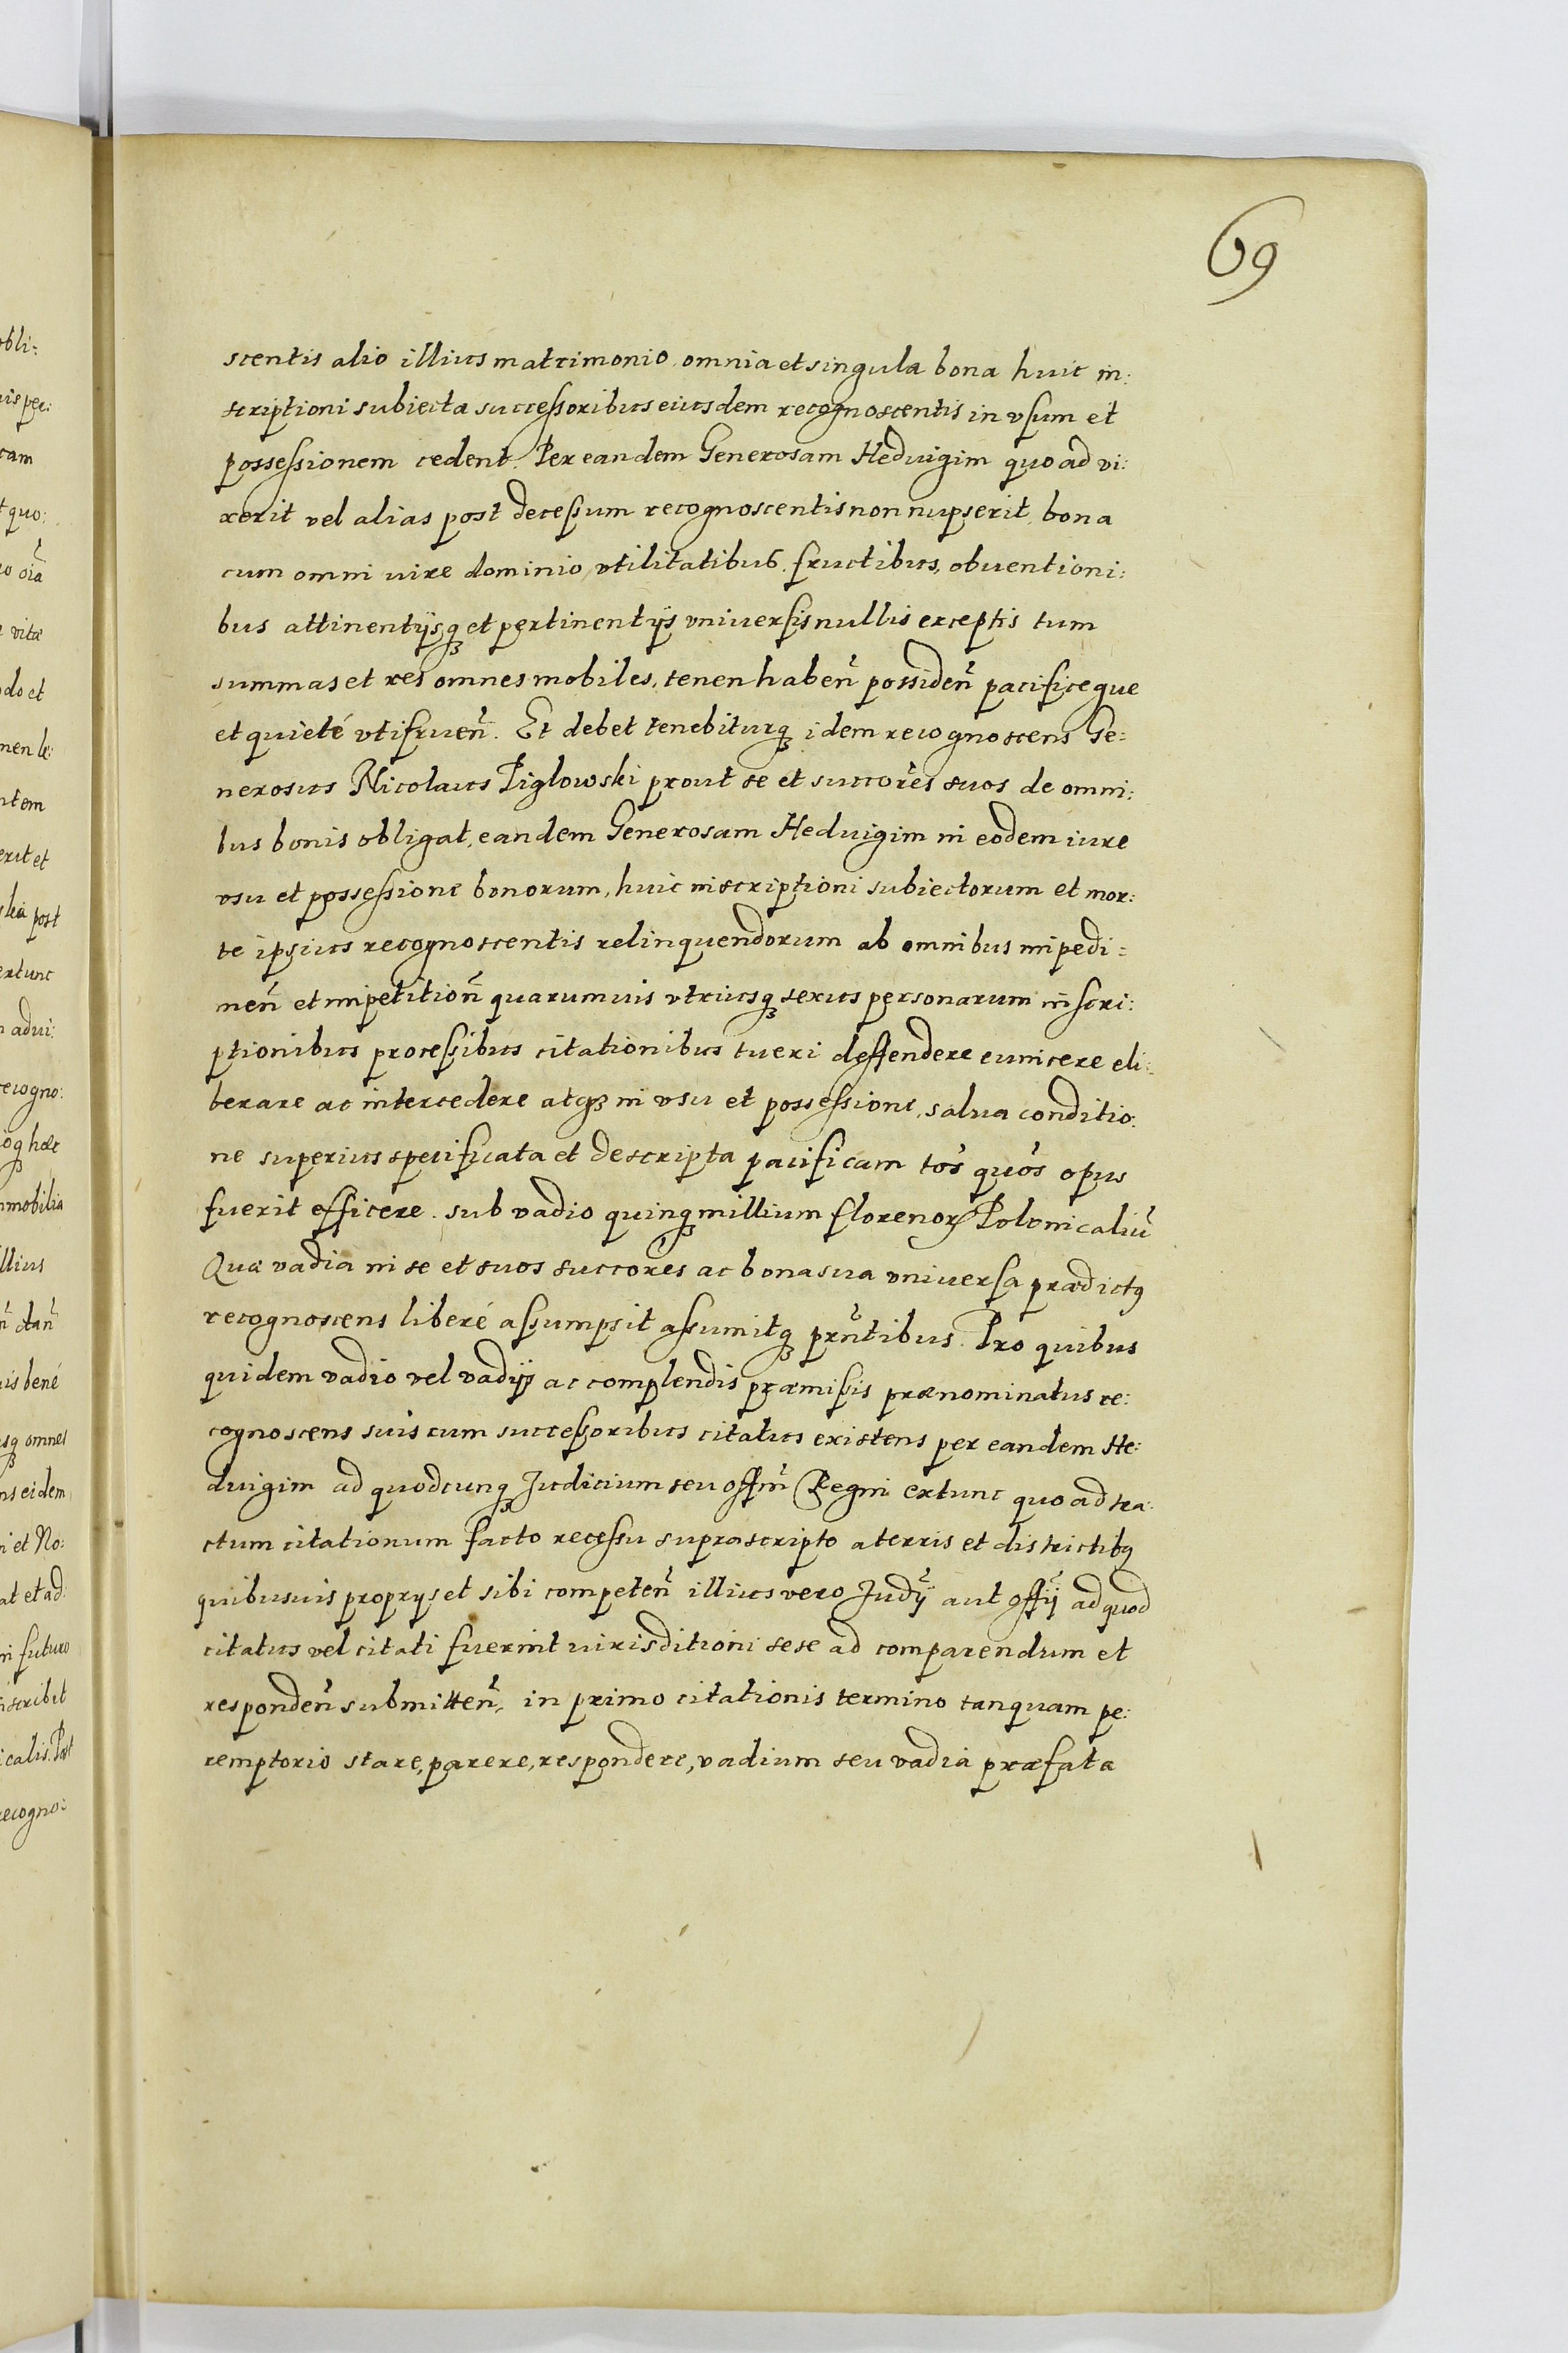 69
scentis alio illius matrimonio, omnia et singula bona huic in:
scriptioni subiecta successoribus eiusdem recognoscentis in vsum et
possessionem cedent. Per eandem Generosam Heduigim quoad vi:
xerit vel alias post decessum recognoscentis non nupserit, bona
cum omni iure dominio, vtilitatibus, fructibus, obuentioni:
bus attinentijsq₃ et pertinentijs vniuersis nullis exceptis tum
summas et res omnes mobiles, tenen habeñ possideñ pacifice que
et quieté vtifrueñ. Et debet tenebiturq₃ idem recognoscens Ge:
nerosus Nicolaus Piglowski prout se et succőres suos de omni:
bus bonis obligat, eandem Generosam Heduigim in eodem iure
vsu et possessione bonorum, huic inscriptioni subiectorum et mor:
te ipsius recognoscentis relinquendorum ab omnibus impedi:
meñ et impetitioñ quarumuis vtriusq₃ sexus personarum inscri:
ptionibus processibus citationibus tueri deffendere euincere eli:
berare ac intercedere atq₃ in vsu et possessione, salua conditio:
ne superius specificata et descripta pacificam tős quős opus
fuerit efficere. sub vadio quinq₃ millium florenorꝝ Polonicaliũ
Quæ vadia in se et suos succőres ac bona sua vniuersa prædictꝰ
recognoscens liberé assumpsit assumitq₃ prñtibus. Pro quibus
quidem vadio vel vadijs ac complendis præmissis prænominatus re:
cognoscens suis cum successoribus citatus existens per eandem He:
duigim ad quodcunq₃ Judicium seu offm̃ Regni extunc quo ad tra:
ctum citationum facto recessu suprascripto a terris et districtibꝰ
quibusuis proprijs et sibi competeñ illius vero Judỹ aut offỹ ad quod
citatus vel citati fuerint iurisditioni sese ad comparendum et
respondeñ submitteñ, in primo citationis termino tanquam pe:
remptorio stare, parere, respondere, vadium seu vadia præfata
obli:
uis per:
quo:
oĩa
vitæ
do et
men le:
ntem
erit et
post
extunc
adui:
recogno:
mmobilia
illius
uis bené
omnes
ns eidem
et No:
at et ad:
in futuro
icalis. Post
recogno: